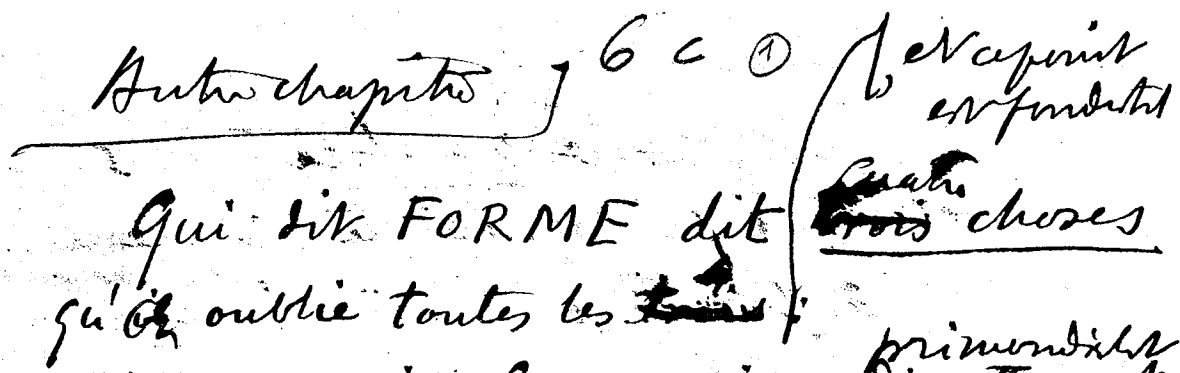 Autre chapitre 6 c 1
et ce point
est fondatl
Qui dit FORME dit quatre trois choses
qu'on oublie toutes les trois :
primordialt